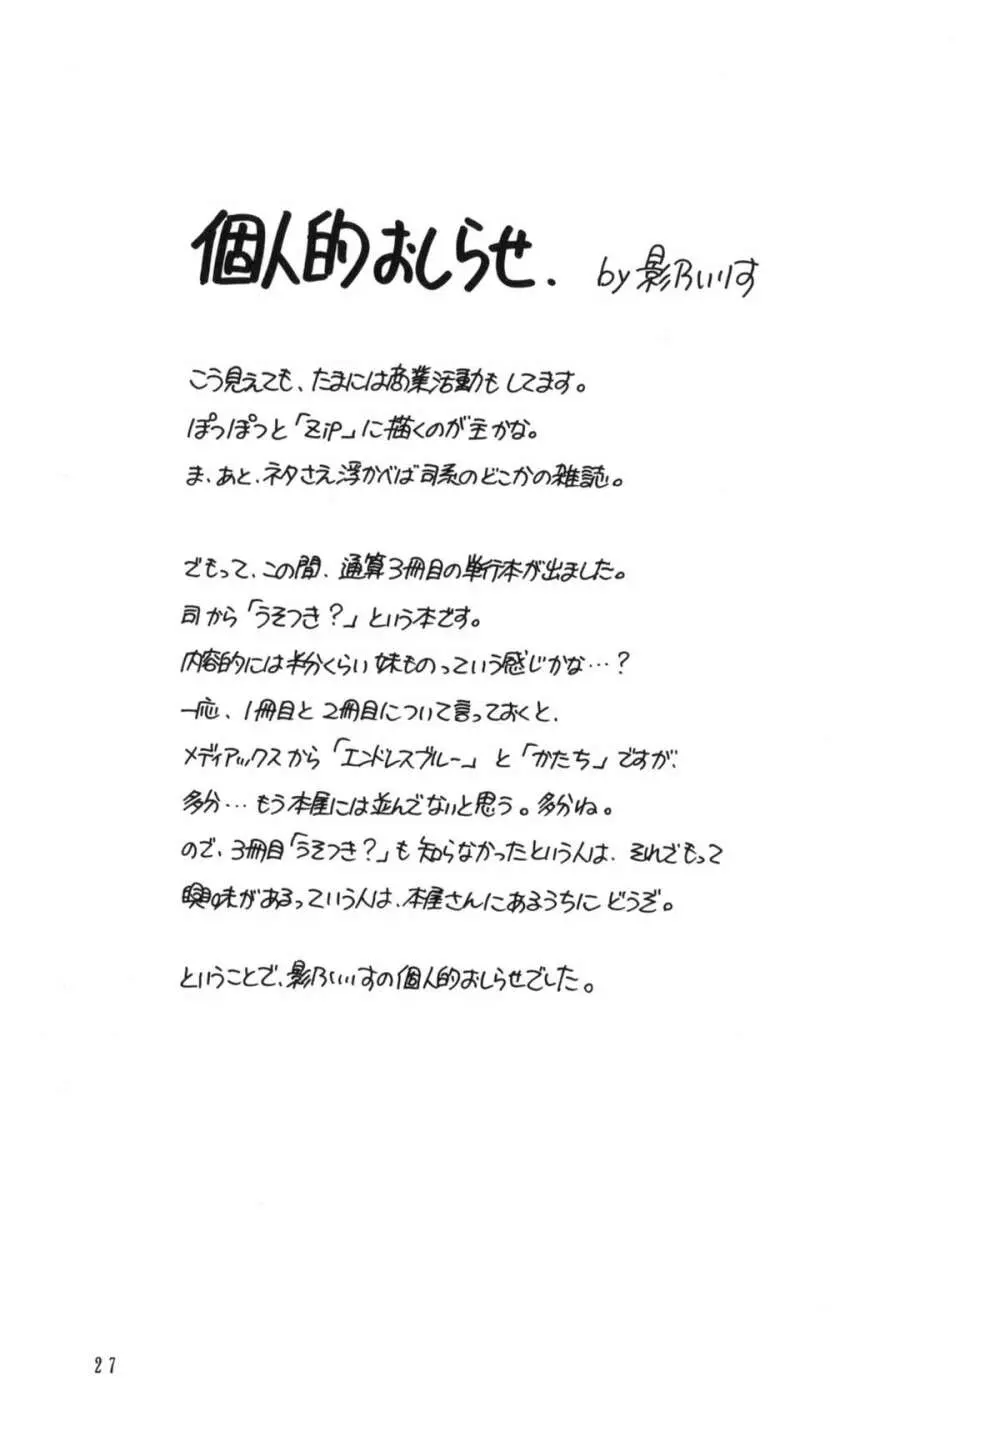 個人的おしらせ. by 影乃いりす
こう見えても、たまには商業活動もしてます。
ぽつぽつと「ZiP」に描くのが主かな。
ま、あと、ネタさえ浮かべば司系のどこかの雑誌。
でもって、この間、通算3冊目の単行本が出ました。
司から「うそつき?」という本です。
内容的には半分くらい妹ものっていう感じかな…?
一応、1冊目と2冊目について言っておくと、
メディアックスから「エンドレスブルー」と「かたち」ですが、
多分…もう本屋には並んでないと思う。多分ね。
ので、3冊目「うそつき?」も知らなかったという人は、それでもって
興味があるっていう人は、本屋さんにあるうちにどうぞ。
ということで、影乃いりすの個人的おしらせでした。
27